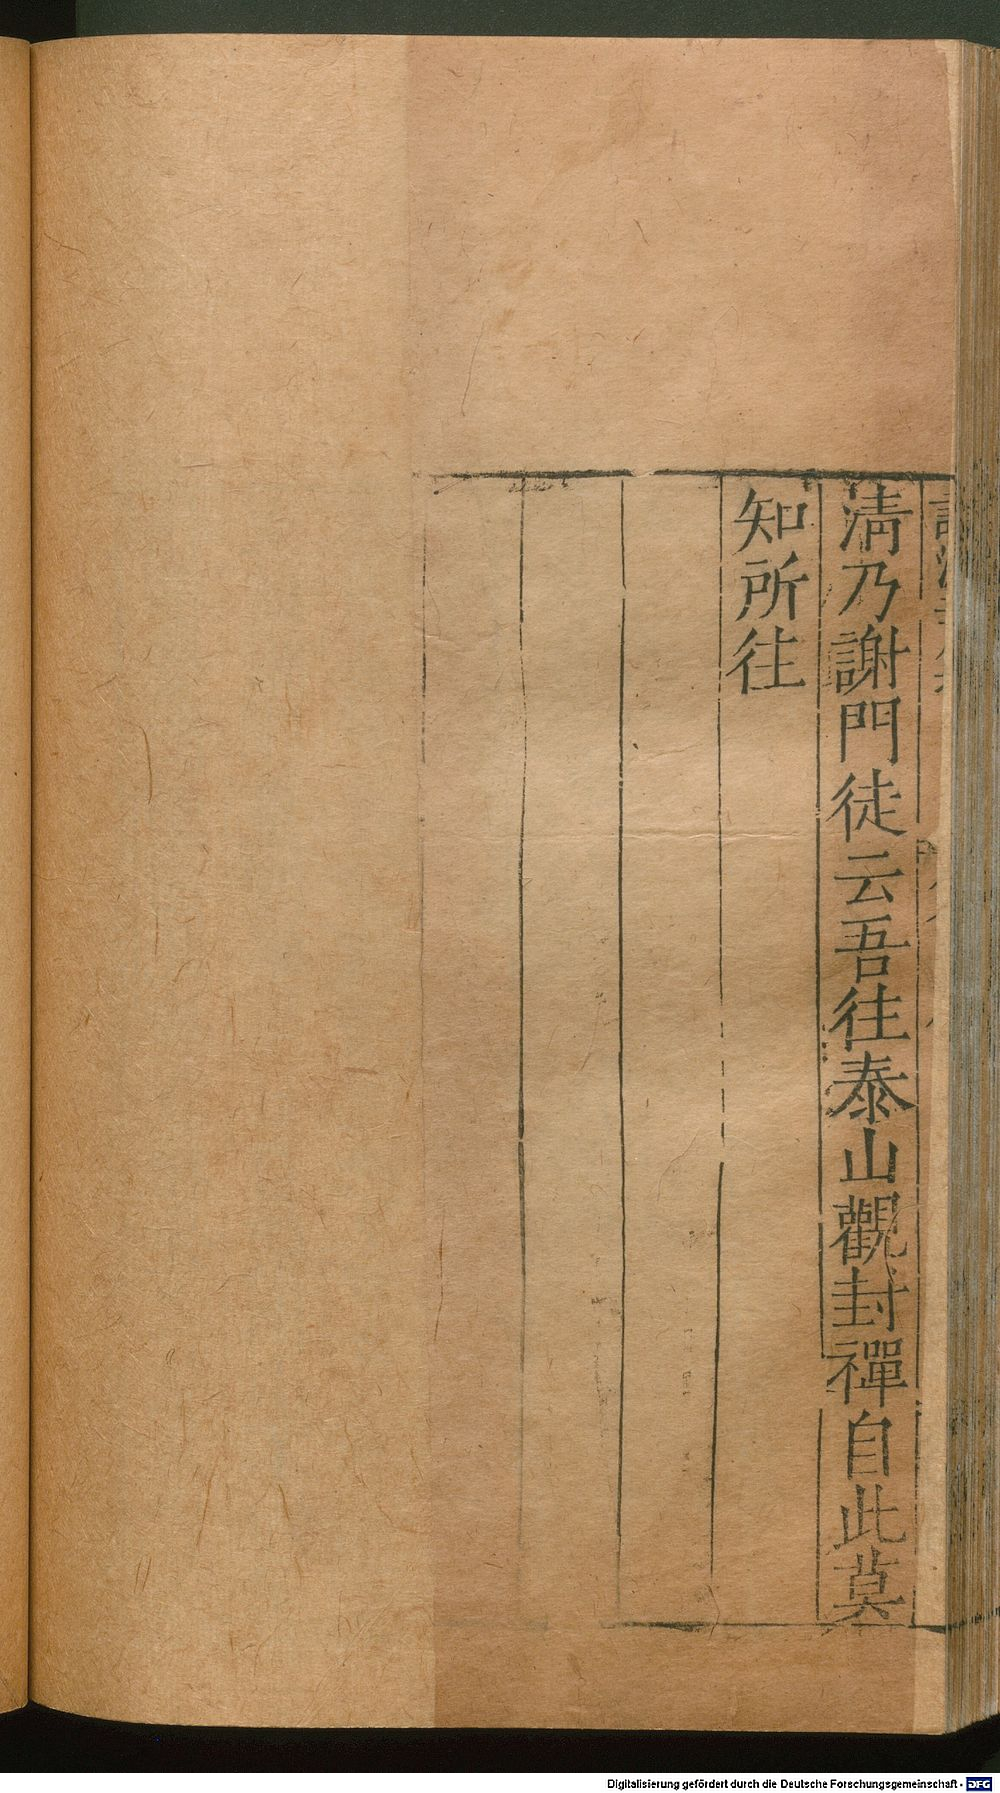 清乃謝門徒云吾往泰山觀封禪自此莫
知所往
Digitalisierung gefördert durch die Deutsche Forschungsgemeinschaft - DFG